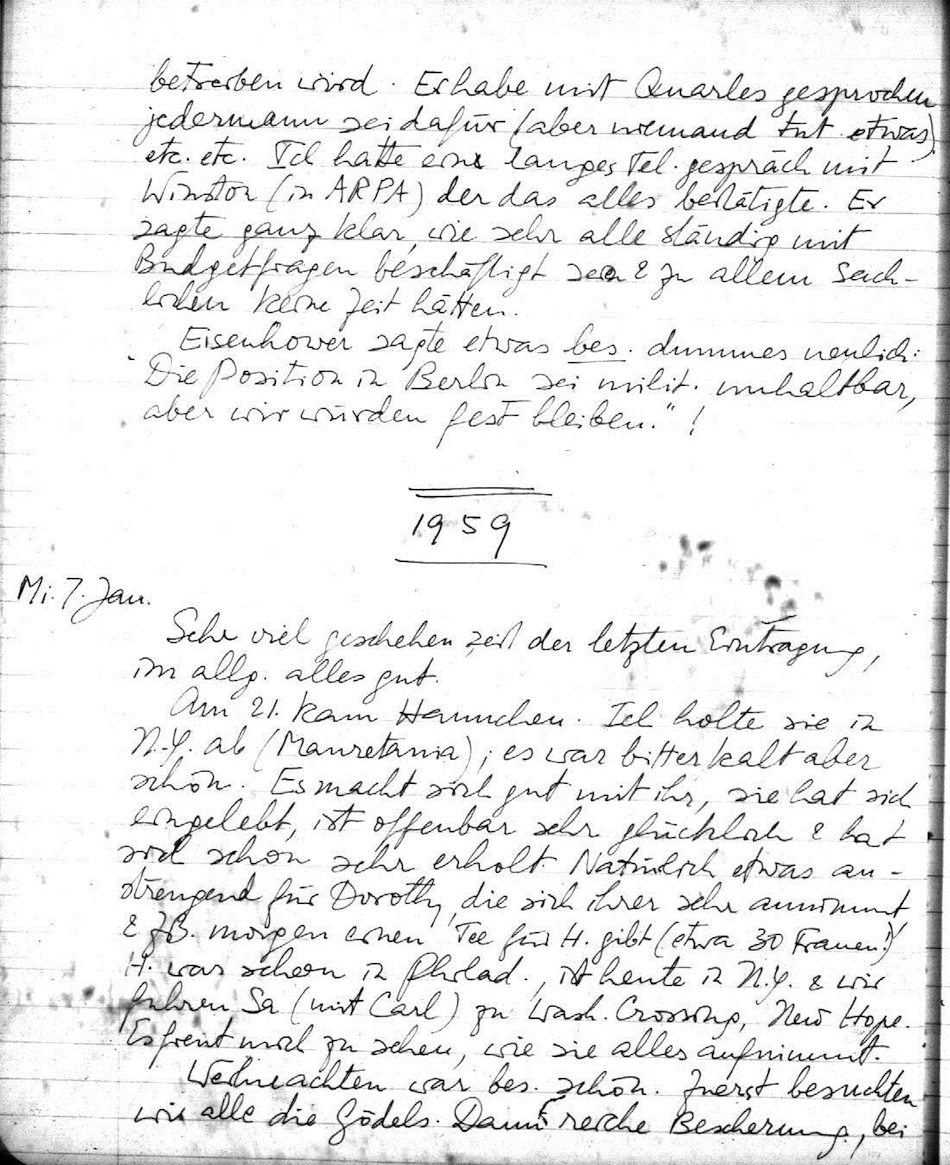 betrieben wird. Er habe mit Quarles gesprochen
jedermann sei dafür (aber niemand tut etwas)
etc. etc. Ich hatte ein langes Tel. gespräch mit
Winston (in ARPA) der das alles bestätigte. Er
sagte ganz klar, wie sehr alle ständig mit
Budgetfragen beschäftigt sei & zu allem Sach-
lichen keine Zeit hätten.
Eisenhower sagte etwas bes. dummes neulich:
"Die Position in Berlin sei milit. unhaltbar,
aber wir würden fest bleiben." !
1959
Mi. 7. Jan.
Sehr viel geschehen seit der letzten Eintragung,
im allg. alles gut.
Am 21. kam Hannchen. Ich holte sie in
N.Y. ab (Mauretania); es war bitter kalt aber
schön. Es macht sich gut mit ihr, sie hat sich
eingelebt, ist offenbar sehr glücklich & hat
sich schon sehr erholt. Natürlich etwas an-
strengend für Dorothy, die sich ihrer sehr annimmt
& z.B. morgen einen Tee für H. gibt (etwa 30 Frauen!)
H. war schon in Philad., ist heute in N.Y. & wir
fuhren Sa (mit Carl) zu Wash. Crossing, New Hope.
Es freut mich zu sehen, wie sie alles aufnimmt.
Weihnachten war bes. schön. Zuerst besuchten
wir alle die Gödels. Dann reiche Bescherung, bei